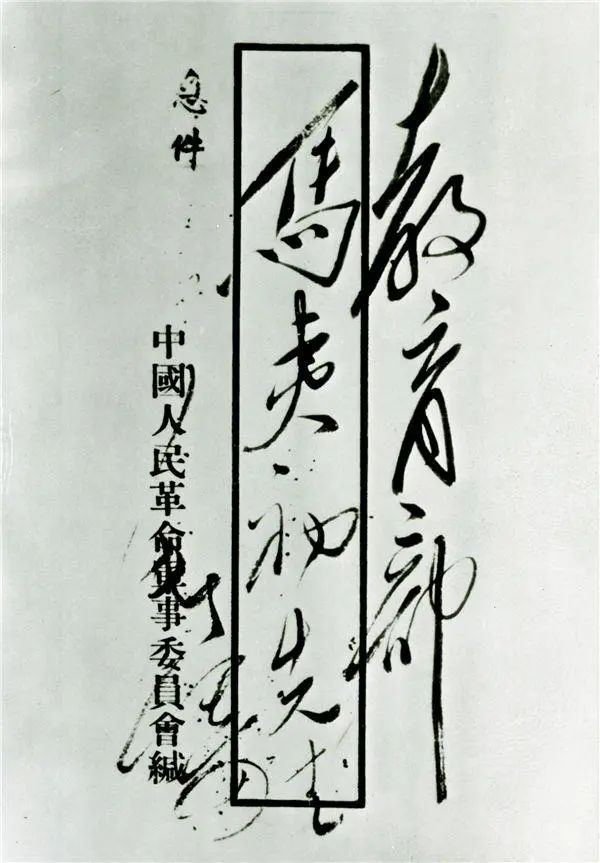 教育部
馬夷初先生
急件
中國人民革命軍事委員會緘